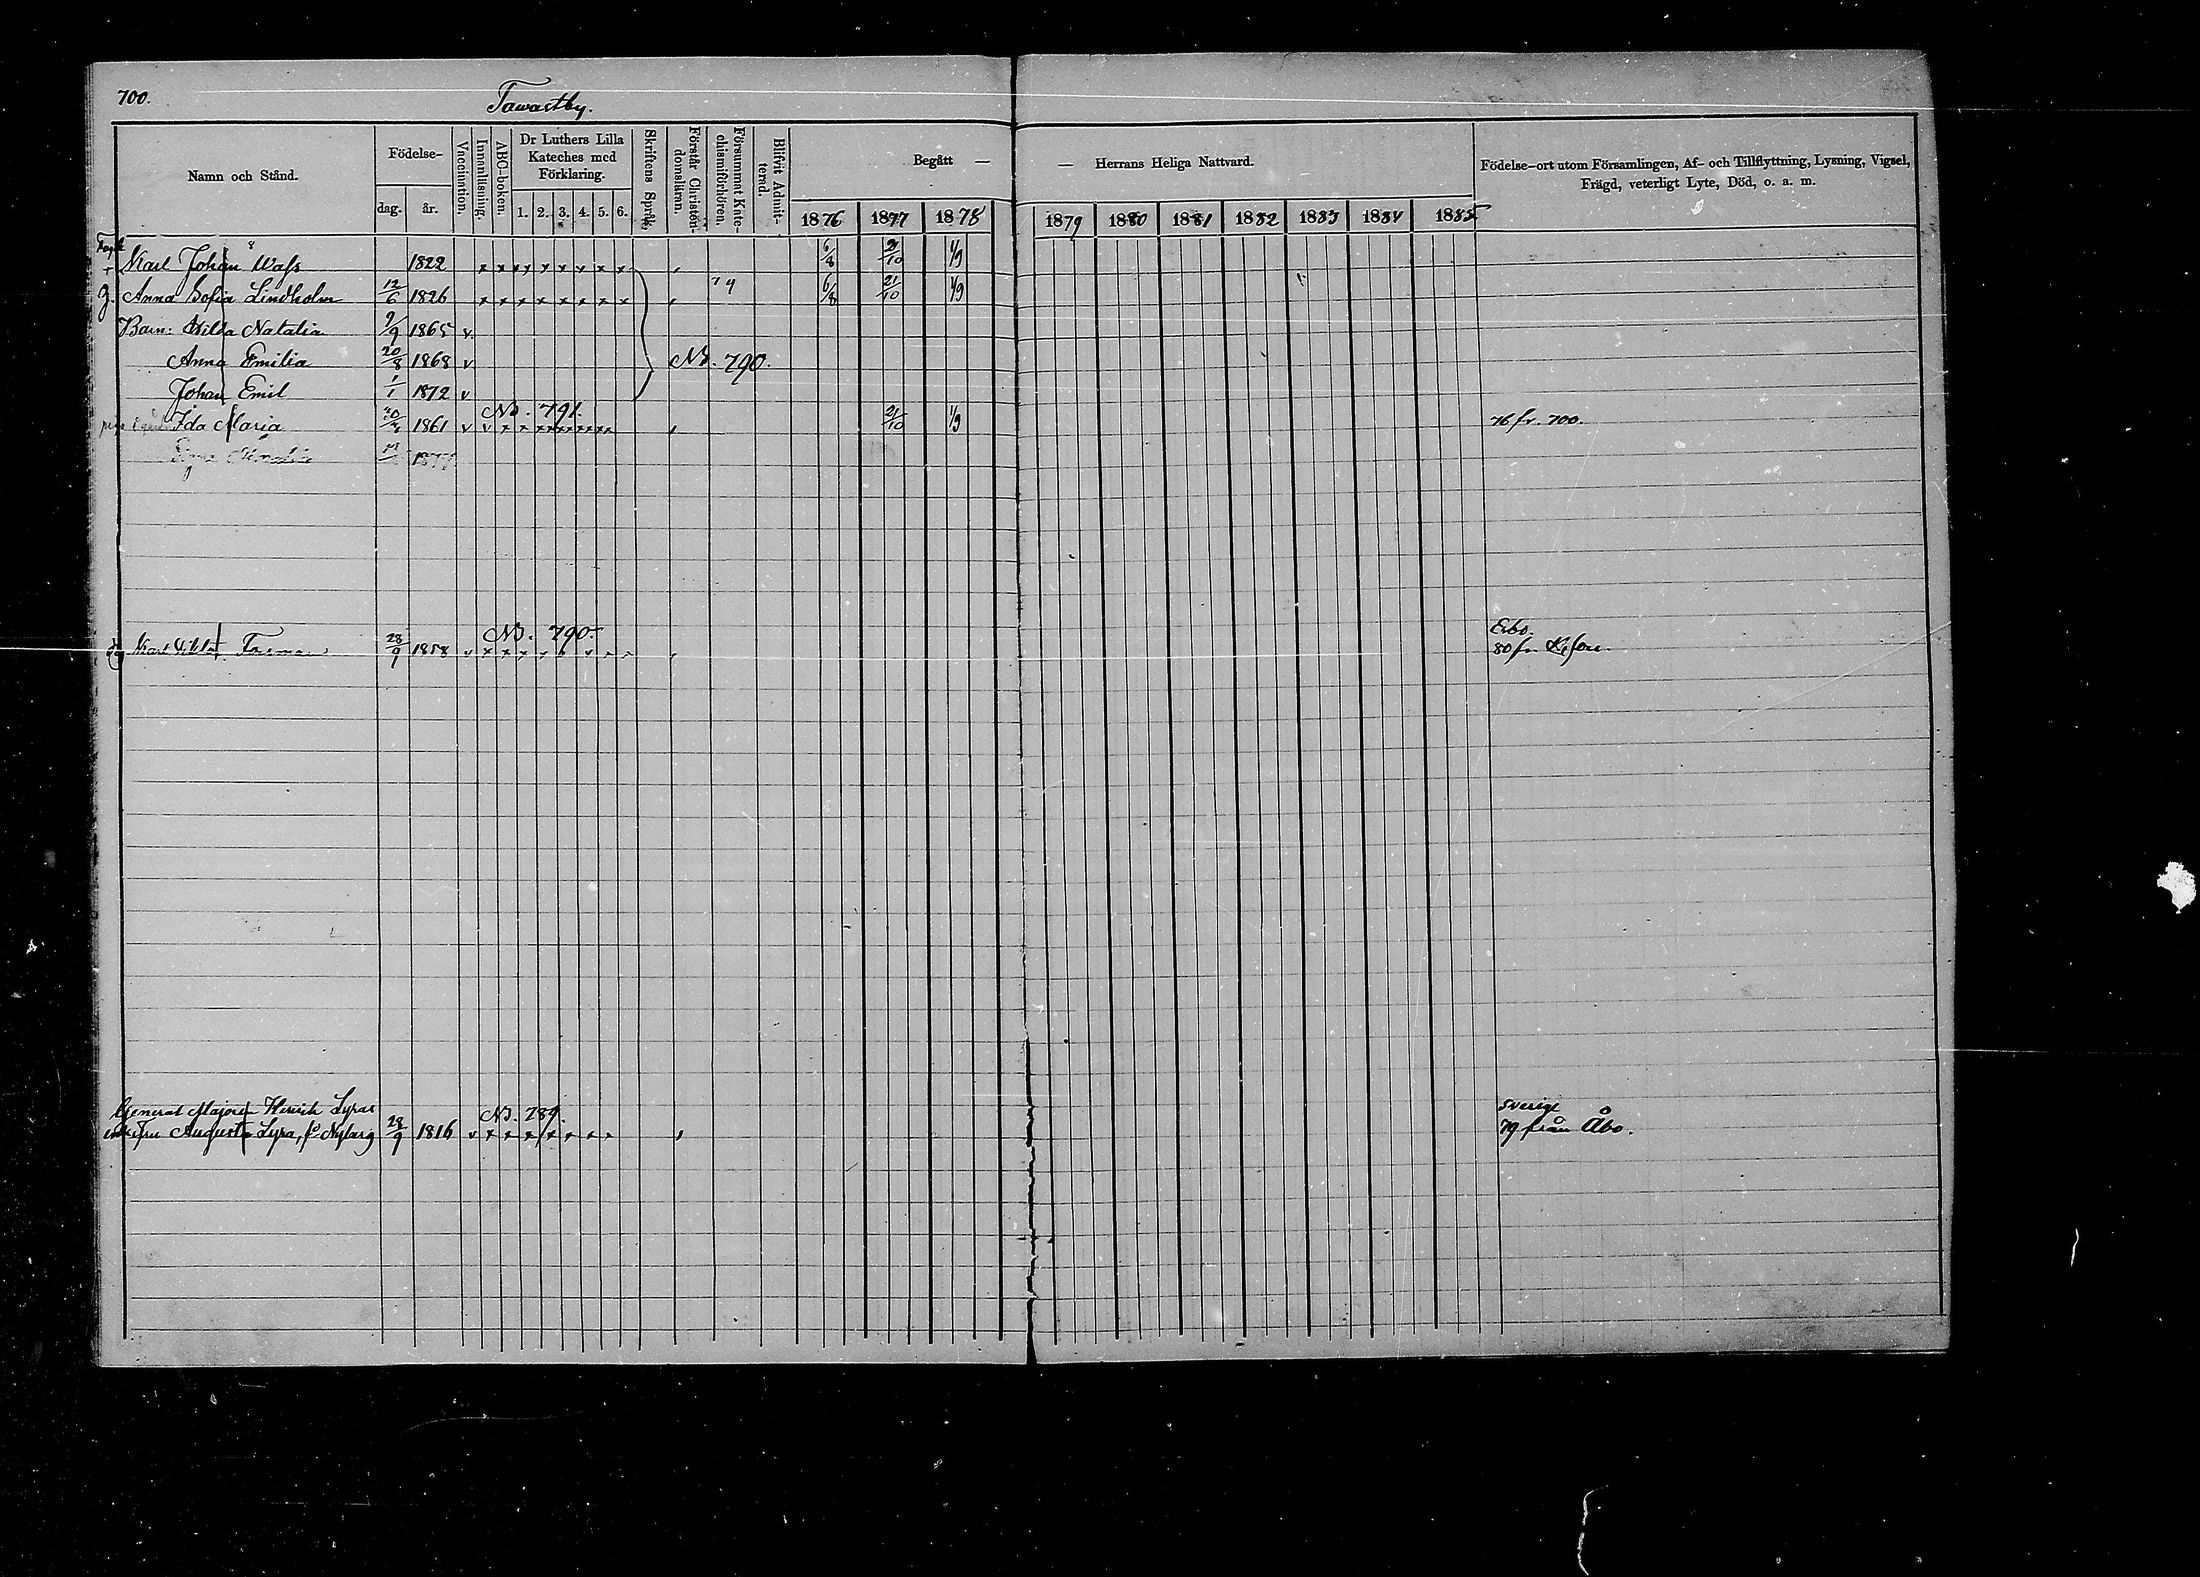 700.
Tawastby.
Namn och Stånd.
Födelse-
dag.
år.
Vaccination.
Innanläsning.
ABC-boken.
Dr Luthers Lilla
Kateches med
Förklaring.
1. 2. 3. 4. 5. 6.
Skriftens Språk.
Förstår Christen-
domsläran.
Försummat Kate-
chismiförhören.
Blifvit Admit-
terad.
Begått —
— Herrans Heliga Nattvard.
1876 1877 1878
1879 1880 1881 1882 1883 1884 1885
Födelse-ort utom Församlingen, Af- och Tillflyttning, Lysning, Vigsel,
Frägd, veterligt Lyte, Död, o. a. m.
+ Karl Johan Wass 1822 x x x x x x x x 6/8 21/10 1/9
g. Anna Sofia Lindholm 12/6 1826 x x x x x x x x 6/8 21/10 1/9
Barn: Hilda Natalia 9/9 1865 v
Anna Emilia 20/8 1868 v No. 790.
Johan Emil 1/1 1872 v
No. 791.
Ida Maria 1861 v v x x x x x x x 21/10 1/9 76 fr. 700.
No. 790.
Karl 28/9 1858 v x x x x x x x x 80 fr.
General Majoren Henrik Lyras
No. 789.
Sverige
Fru Augusta Lyra, f. 28/9 1816 v x x x x x x x 79 från Åbo.